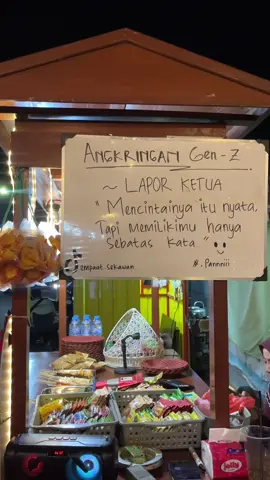 ANGKRINGAN Gen-Z
~ LAPOR KETUA
"Mencintainya itu nyata,
Tapi Memilikimu hanya
Sebatas Kata"
empaat.sekawan
#.Pannniii
jolly